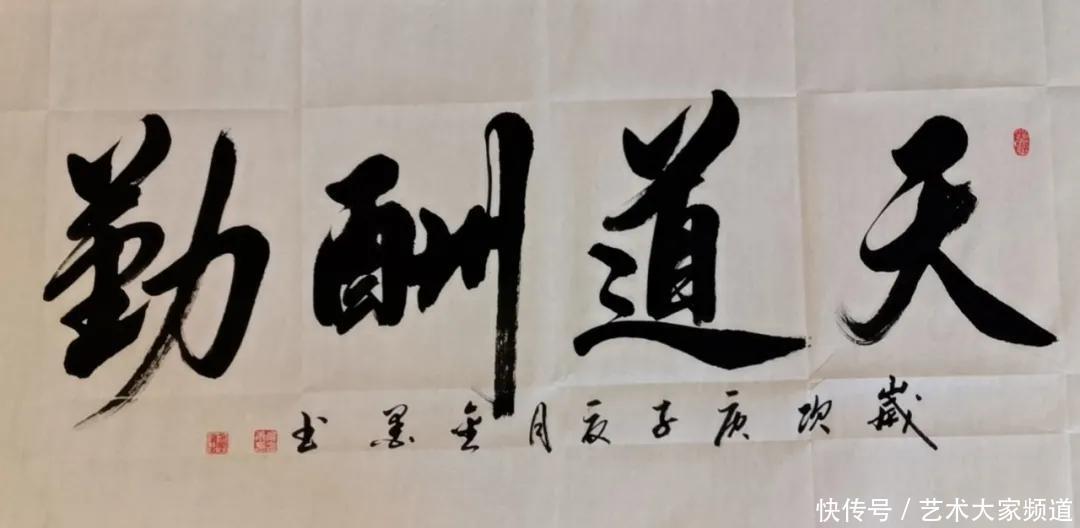 天道酬勤
岁次庚子夏月金墨书
快传号 / 艺术大家频道